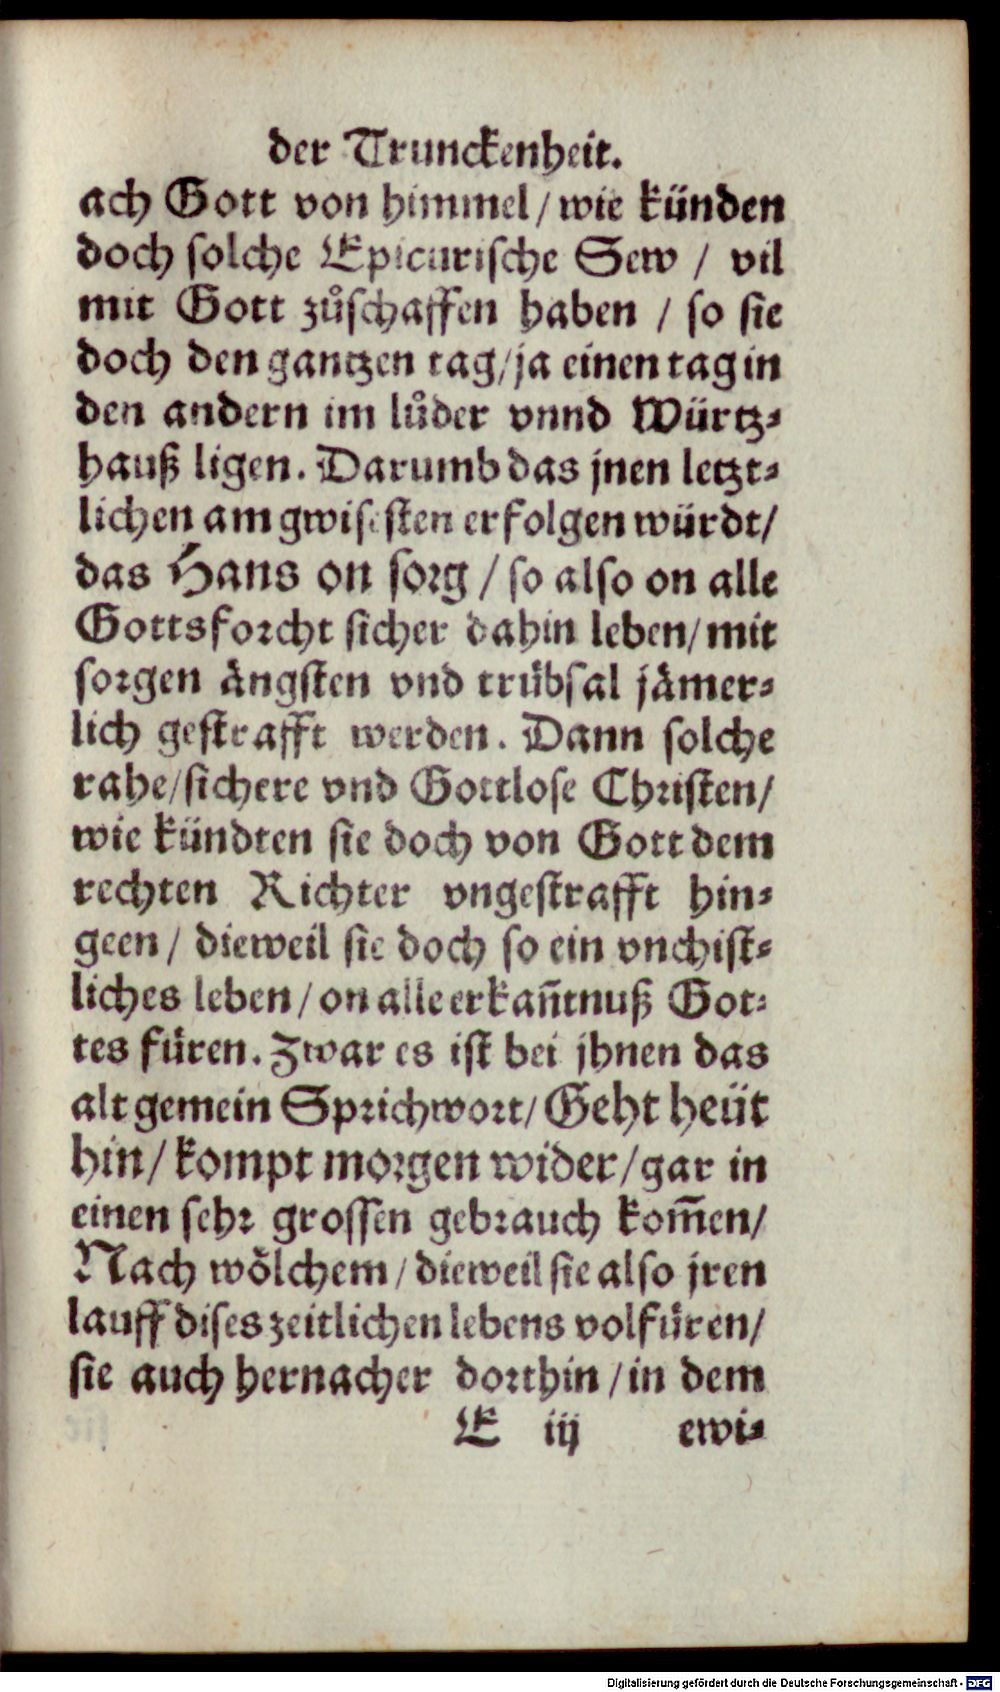 der Trunckenheit.
ach Gott von himmel / wie künden
doch solche Epicurische Sew / vil
mit Gott zuͦschaffen haben / so sie
doch den gantzen tag / ja einen tag in
den andern im luͦder vnnd Würtz-
hauß ligen. Darumb das jnen letzt-
lichen am gwisesten erfolgen würdt /
das Hans on sorg / so also on alle
Gottsforcht sicher dahin leben / mit
sorgen ängsten vnd trübsal jämer-
lich gestrafft werden. Dann solche
rahe / sichere vnd Gottlose Christen /
wie kündten sie doch von Gott dem
rechten Richter vngestrafft hin-
geen / dieweil sie doch so ein vnchist-
liches leben / on alle erkañtnuß Got-
tes füren. Zwar es ist bei jhnen das
alt gemein Sprichwort / Geht heüt
hin / kompt morgen wider / gar in
einen sehr grossen gebrauch kom̃en /
Nach wölchem / dieweil sie also jren
lauff dises zeitlichen lebens volfüren /
sie auch hernacher dorthin / in dem
E iij ewi-
Digitalisierung gefördert durch die Deutsche Forschungsgemeinschaft - DFG